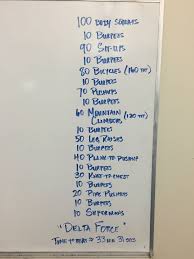 100 Body Squats
10 Burpees
90 Sit-ups
10 Burpees
80 Bicycles (160 tot)
10 Burpees
70 Pushups
10 Burpees
60 Mountain
Climbers (120 tot)
10 Burpees
50 Leg Raises
10 Burpees
40 Plank-to-Pushup
10 Burpees
30 Knee-to-Chest
10 Burpees
20 Pike Pushups
10 Burpees
10 Supermans
"Delta Force"
Time to beat → 33 min 31 secs